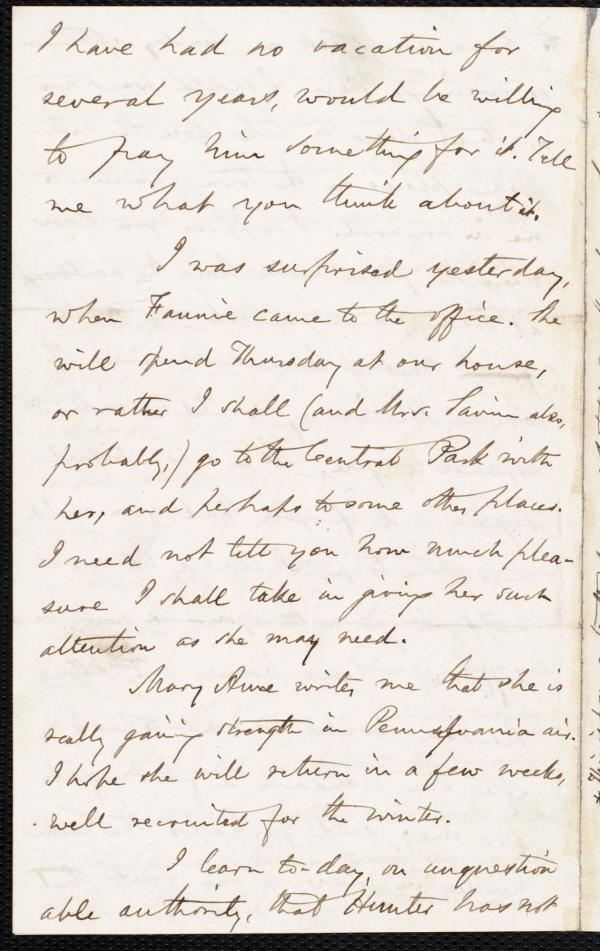 I have had no vacation for
several years, would be willing
to pay him something for it. Tell
me what you think about it.
I was surprised yesterday,
when Fannie came to the office. She
will spend Thursday at our house,
or rather I shall (and Mrs. Savin also,
probably,) go to the Central Park with
her, and perhaps to some other places.
I need not tell you how much plea-
sure I shall take in giving her such
attention as she may need.
Mary Anne writes me that she is
really gaining strength in Pennsylvania air.
I hope she will return in a few weeks,
well recruited for the winter.
I learn to-day, on unquestion
able authority, that Hunter has not